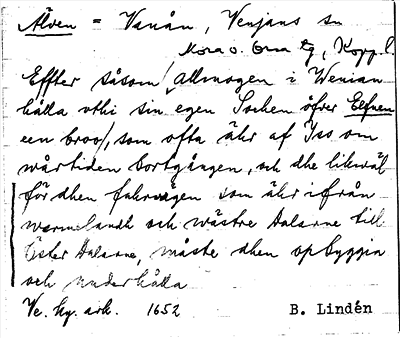 Älven = Vanån, Venjans sn
Mora o. Orsa tg, Kopp.l.
Effter såsom Allmogen i Wenian
hålla vthi sin egen Sochen öfrer Elfven
een broo, som ofta ähr af Iss om
wårtiden bortgången, och dhe likwäl
för dhen fahrwägen som ähr ifrån
wermelandh och wästre Dalarne till
Öster Dalarne, måste dhen opbyggia
och underhålla
Ve. hy. ark. 1652 B. Lindén